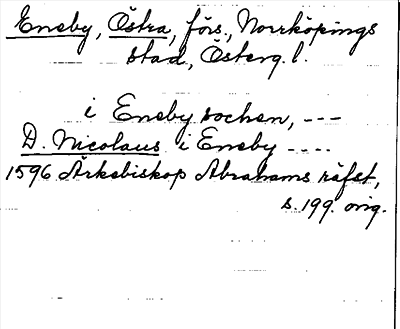 Eneby, Östra, förs., Norrköpings
stad, Österg. l.
i Eneby sochen, ---
D. Nicolaus i Eneby ----
1596 Ärkebiskop Abrahams räfst,
s. 199. orig.